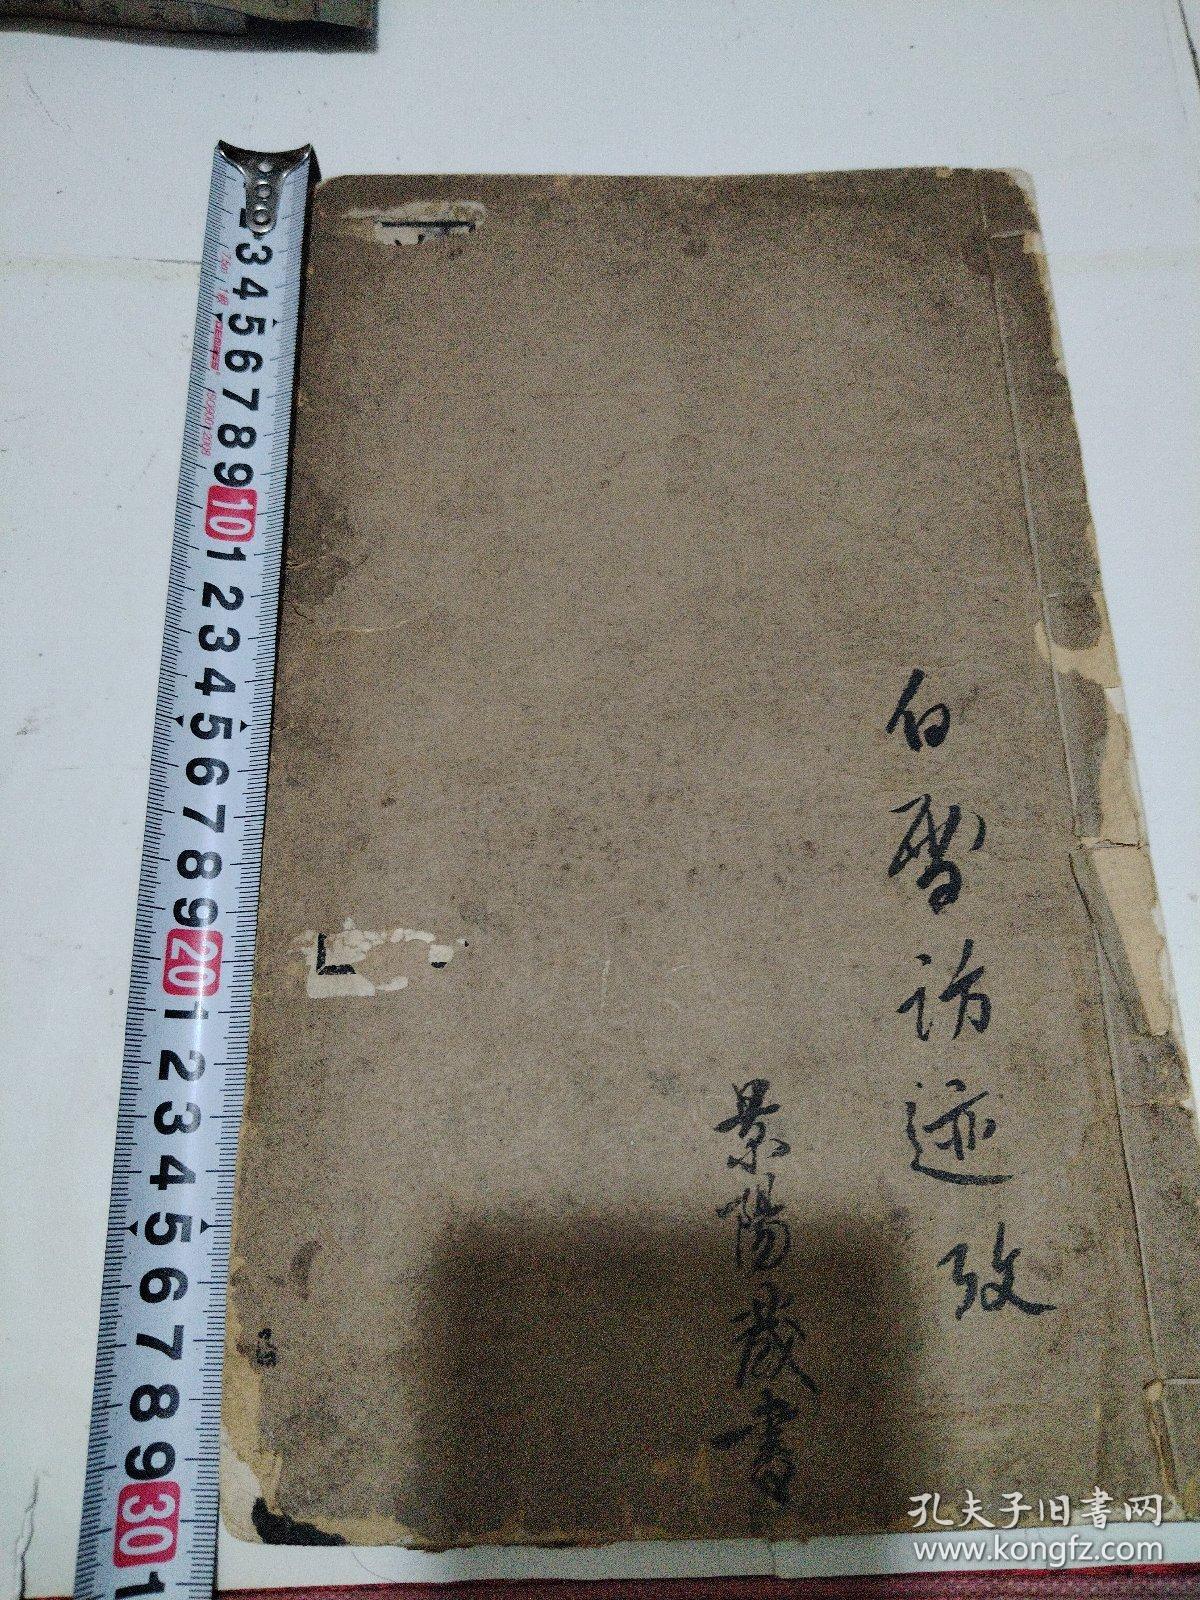 白
訪迹攷
景陽藏書
3
4
5
6
7
8
9
10
1
2
3
4
5
6
7
8
9
20
1
2
3
4
5
6
7
8
9
30
1
孔夫子旧書网
www.kongfz.com